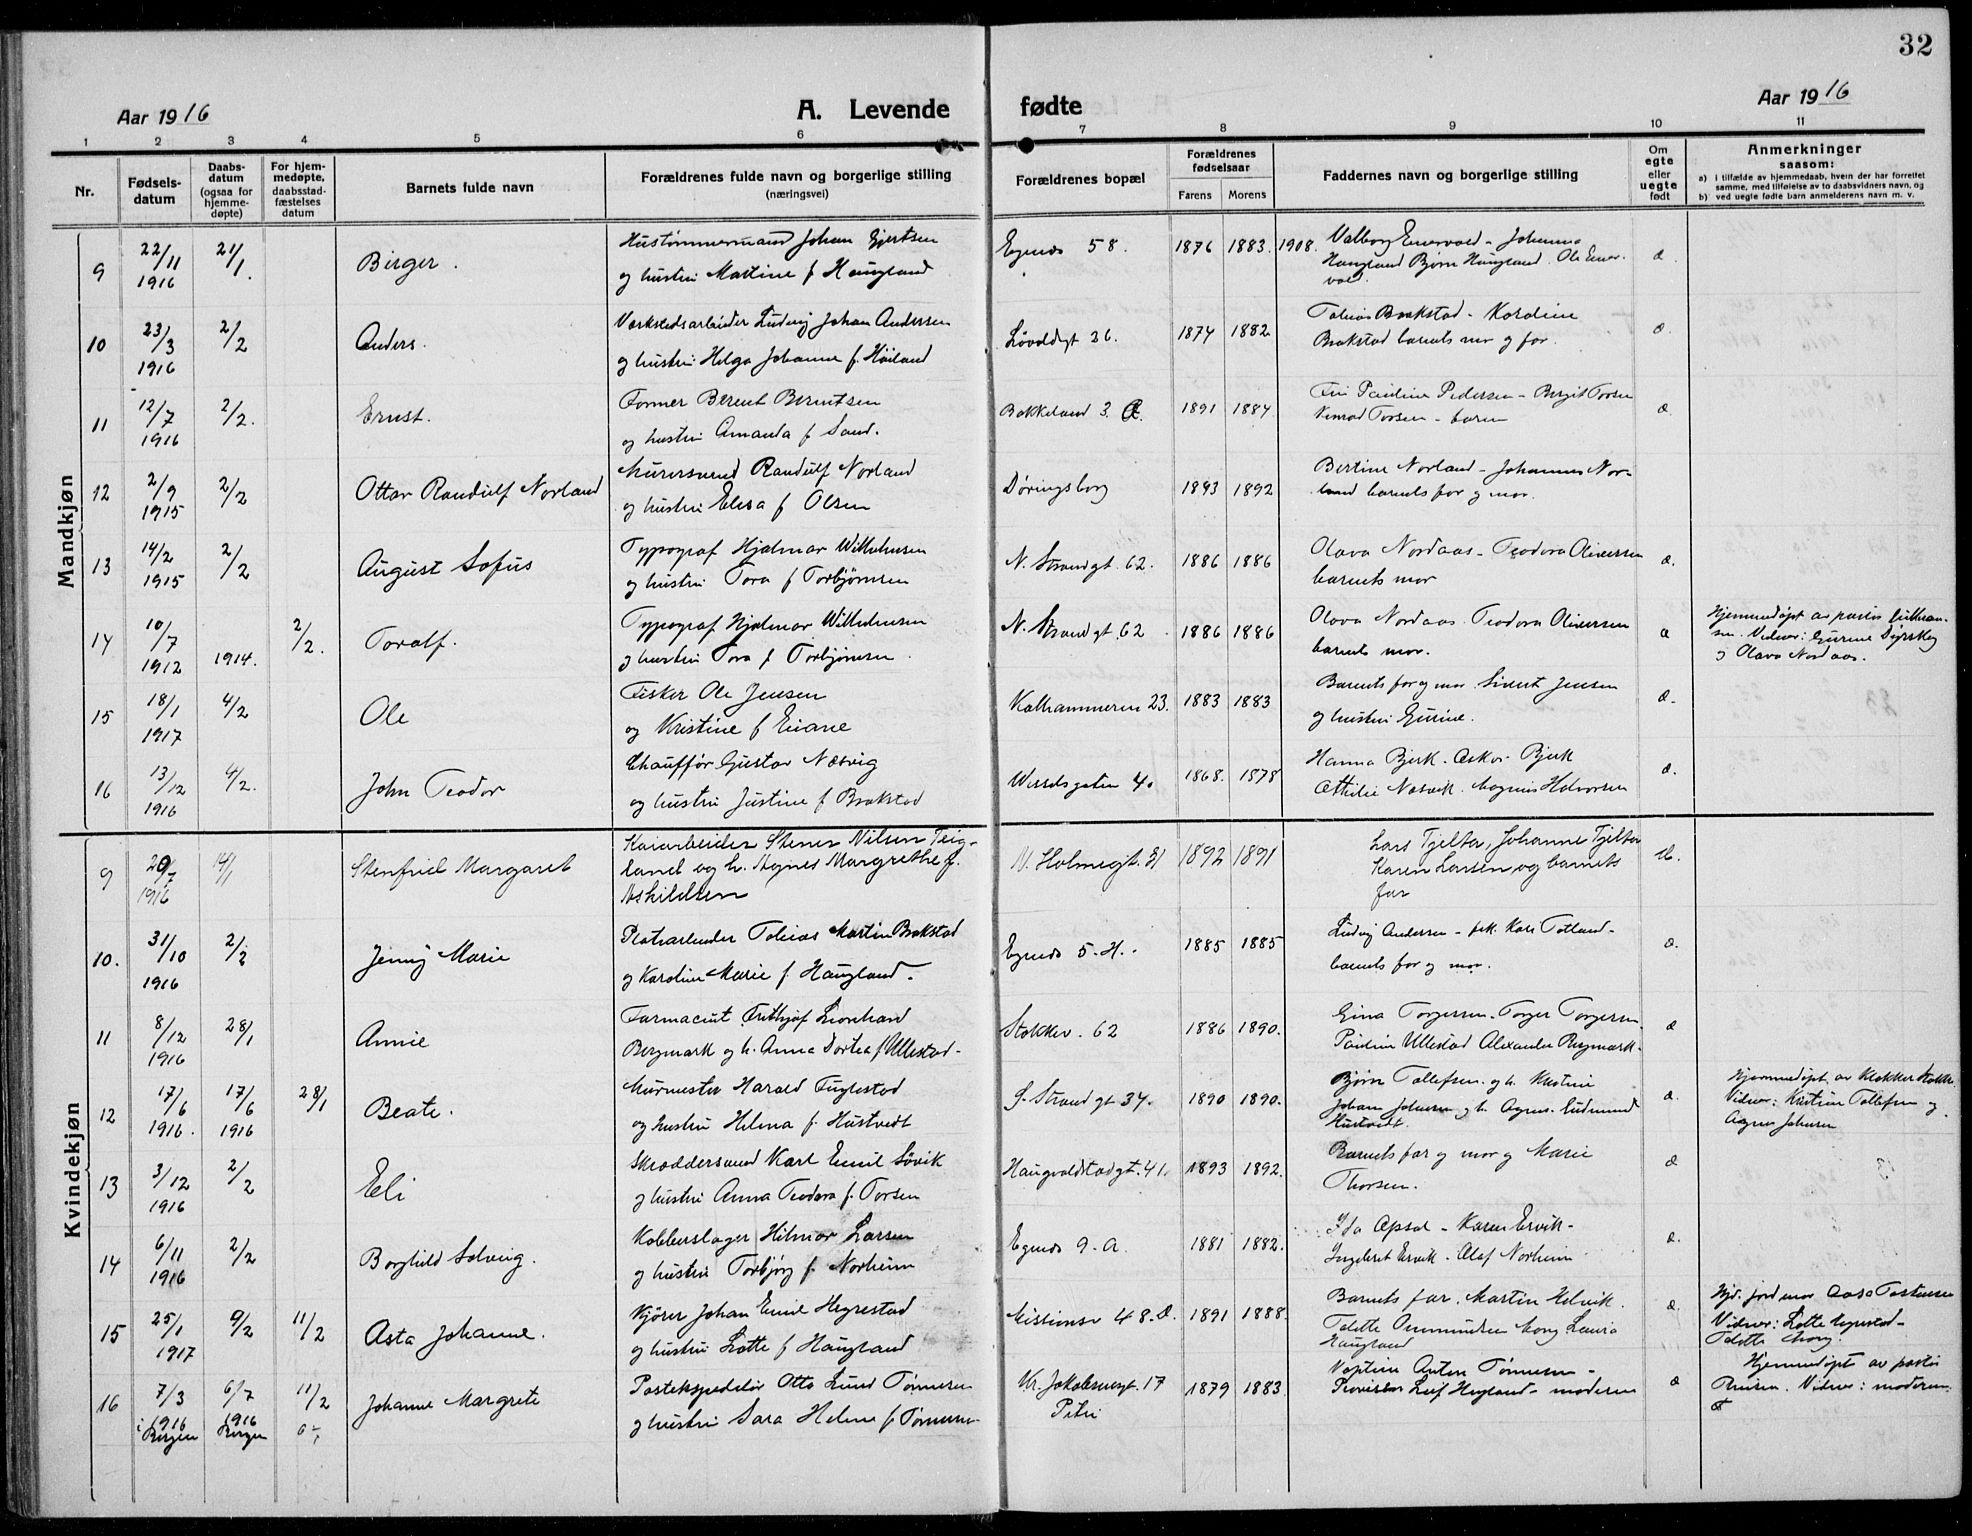 32
Aar 1916
A. Levende fødte
Aar 1916
1 2 3 4 5 6 7 8 9 10 11
Nr.
Fødsels-
datum
Daabs-
datum
(ogsaa for
hjemme-
døpte)
For hjem-
medøpte,
daabsstad-
fæstelses
datum
Barnets fulde navn
Forældrenes fulde navn og borgerlige stilling
(næringsvei)
Forældrenes bopæl
Forældrenes
fødselsaar
Farens Morens
Faddernes navn og borgerlige stilling
Om
egte
eller
uegte
født
Anmerkninger
saasom:
a) i tilfælde av hjemmedaab, hvem der har forrettet
samme, med tilføielse av to daabsvidners navn, og
b) ved uegte fødte barn anmelderens navn m. v.
Mandkjøn
9 22/11 1916 21/1. Birger.
Hustømmermand Johan Gjertsen
og hustru Martine f Haugland
Egenes 58. 1876 1883. 1908.
Valborg Enervold - Johanna
Haugland Bjørn Haugland. Ole Ener-
vold.
10 23/3 1916 2/2 Anders.
Værkstedsarbeider Ludvig Johan Andersen
og hustru Helga Johanne f. Høiland
Løvoldgt 36. 1874 1882
Tobias Brakstad - Karoline
Brakstad barnets mor og far.
11 12/7 1916 2/2. Ernst.
Former Berent Berntsen
og hustru Amanda f Sand.
Bakkeland 3. 1891 1884
Pauline Pedersen - Birgit Torsen
Torsen - baren
12 2/9 1915 2/2 Ottar Randulf Norland
Murersvend Randulf Norland
og hustru Elisa f Olsen
Døringsborg 1893 1892
Bertine Norland - Johannes Nor-
land barnets far og mor.
13 14/2 1915 2/2 August Sofus
Typograf Hjalmar Wilhelmsen
og hustru Tora f Torbjørnsen
N. Strandgt. 62. 1886 1886
Olava Nordaas - Teodora Oliversen
barnets mor
14 10/7 1912 1914. 2/2. Toralf.
Typograf Hjalmar Wilhelmsen
og hustru Tora f Torbjørnsen.
N. Strandgt. 62 1886 1886
Olava Nordaas. Teodora Oliversen
barnets mor.
Hjemmedøpt av
Vidner: Gurine
og Olava Nordaas.
15 18/1 1917 4/2 Ole
Fisker Ole Jensen
og Kristine f Eiane
Kalhammeren 23. 1883 1883
Barnets far og mor. Sivert Jensen
og hustru Gurine.
16 13/12 1916 4/2. John Teodor
Chauffør Gustav Næsvig
og hustru Justine f Brakstad
Wesselsgaten 40 1868. 1878
Hanna Bjerk. Oskar Bjerk
Ottilie Næsvik. Magnus Halvorsen
Kvindekjøn
9 1916 14/1 Stenfrid Margaret
Kaiarbeider Stener Nilsen Teig-
land og h. Agnes Margrethe f.
Askildsen
N. Holmegt. 21 1892 1891
Lars Tjelta, Johanne Tjelta
Karen Larsen og barnets
far
10. 31/10 1916 2/2 Jenny Marie
Tobias Martin Brakstad
og Karoline Marie f. Haugland.
Egenes 5. H. 1885 1885
Ludvig Andersen - frk. Kari Totland -
barnets far og mor.
11 8/12 1916 28/1 Annie
Farmaceut Fritthjof Lionhard
Bergmark og h. Anna Dortea f Ullestad -
Stokkev. 62 1886 1890.
Gina Torgersen. Torger Torgersen
Pauline Ullestad Alexander Bergmark.
12 17/6 1916. 17/6 1916 28/1 Beate.
Murmester Harald Fuglestad
og hustru Helena f. Hustvedt
S. Strandgt 34. 1890 1890.
Bjørn Tollefsen. og h. Kristine
Johan Johnsen og h. Agnes. Gudmund
Hustvedt.
Hjemmedøpt av Klokker
Vidner: Kristine Tollefsen og
Agnes Johnsen
13 3/12 1916 2/2 Eli
Skræddersvend Karl Emil Søvik
og hustru Anna Teodora f. Torsen
Haugvaldstadgt. 41. 1893 1892.
Barnets far og mor og Marie
Thorsen.
14 6/11 1916 2/2 Borghild Solveig.
Kobberslager Hilmar Larsen
og hustru Torbjørg f. Norheim
Egenes 9. A. 1881 1882.
Ida Opsal - Karen Ervik -
Ingebret Ervik - Olaf Norheim
15 25/1 1917 9/2 11/2 Asta Johanne.
Kjører Johan Emil Hegrestad
og hustru Lotte f Haugland
Missionsv 48. 1891 1888.
Barnets far. Martin Helvik.
Tolette Laura
Haugland
Hjd. jordmor Aasa Tostensen
Vidner: Lotte Hegrestad -
16 7/3 1916 i Bergen 6/7 1916 Bergen 11/2 Johanne Margrete
Postekspeditør Otto Lund Tønnesen
og hustru Sara Helene f Tønnesen
Kr. Jakobsensgt. 17
Petri 1879 1883.
Kaptein Anton Tønnesen -
Leif Hegland - moderen
Hjemmedøpt av
Vidner: moderen